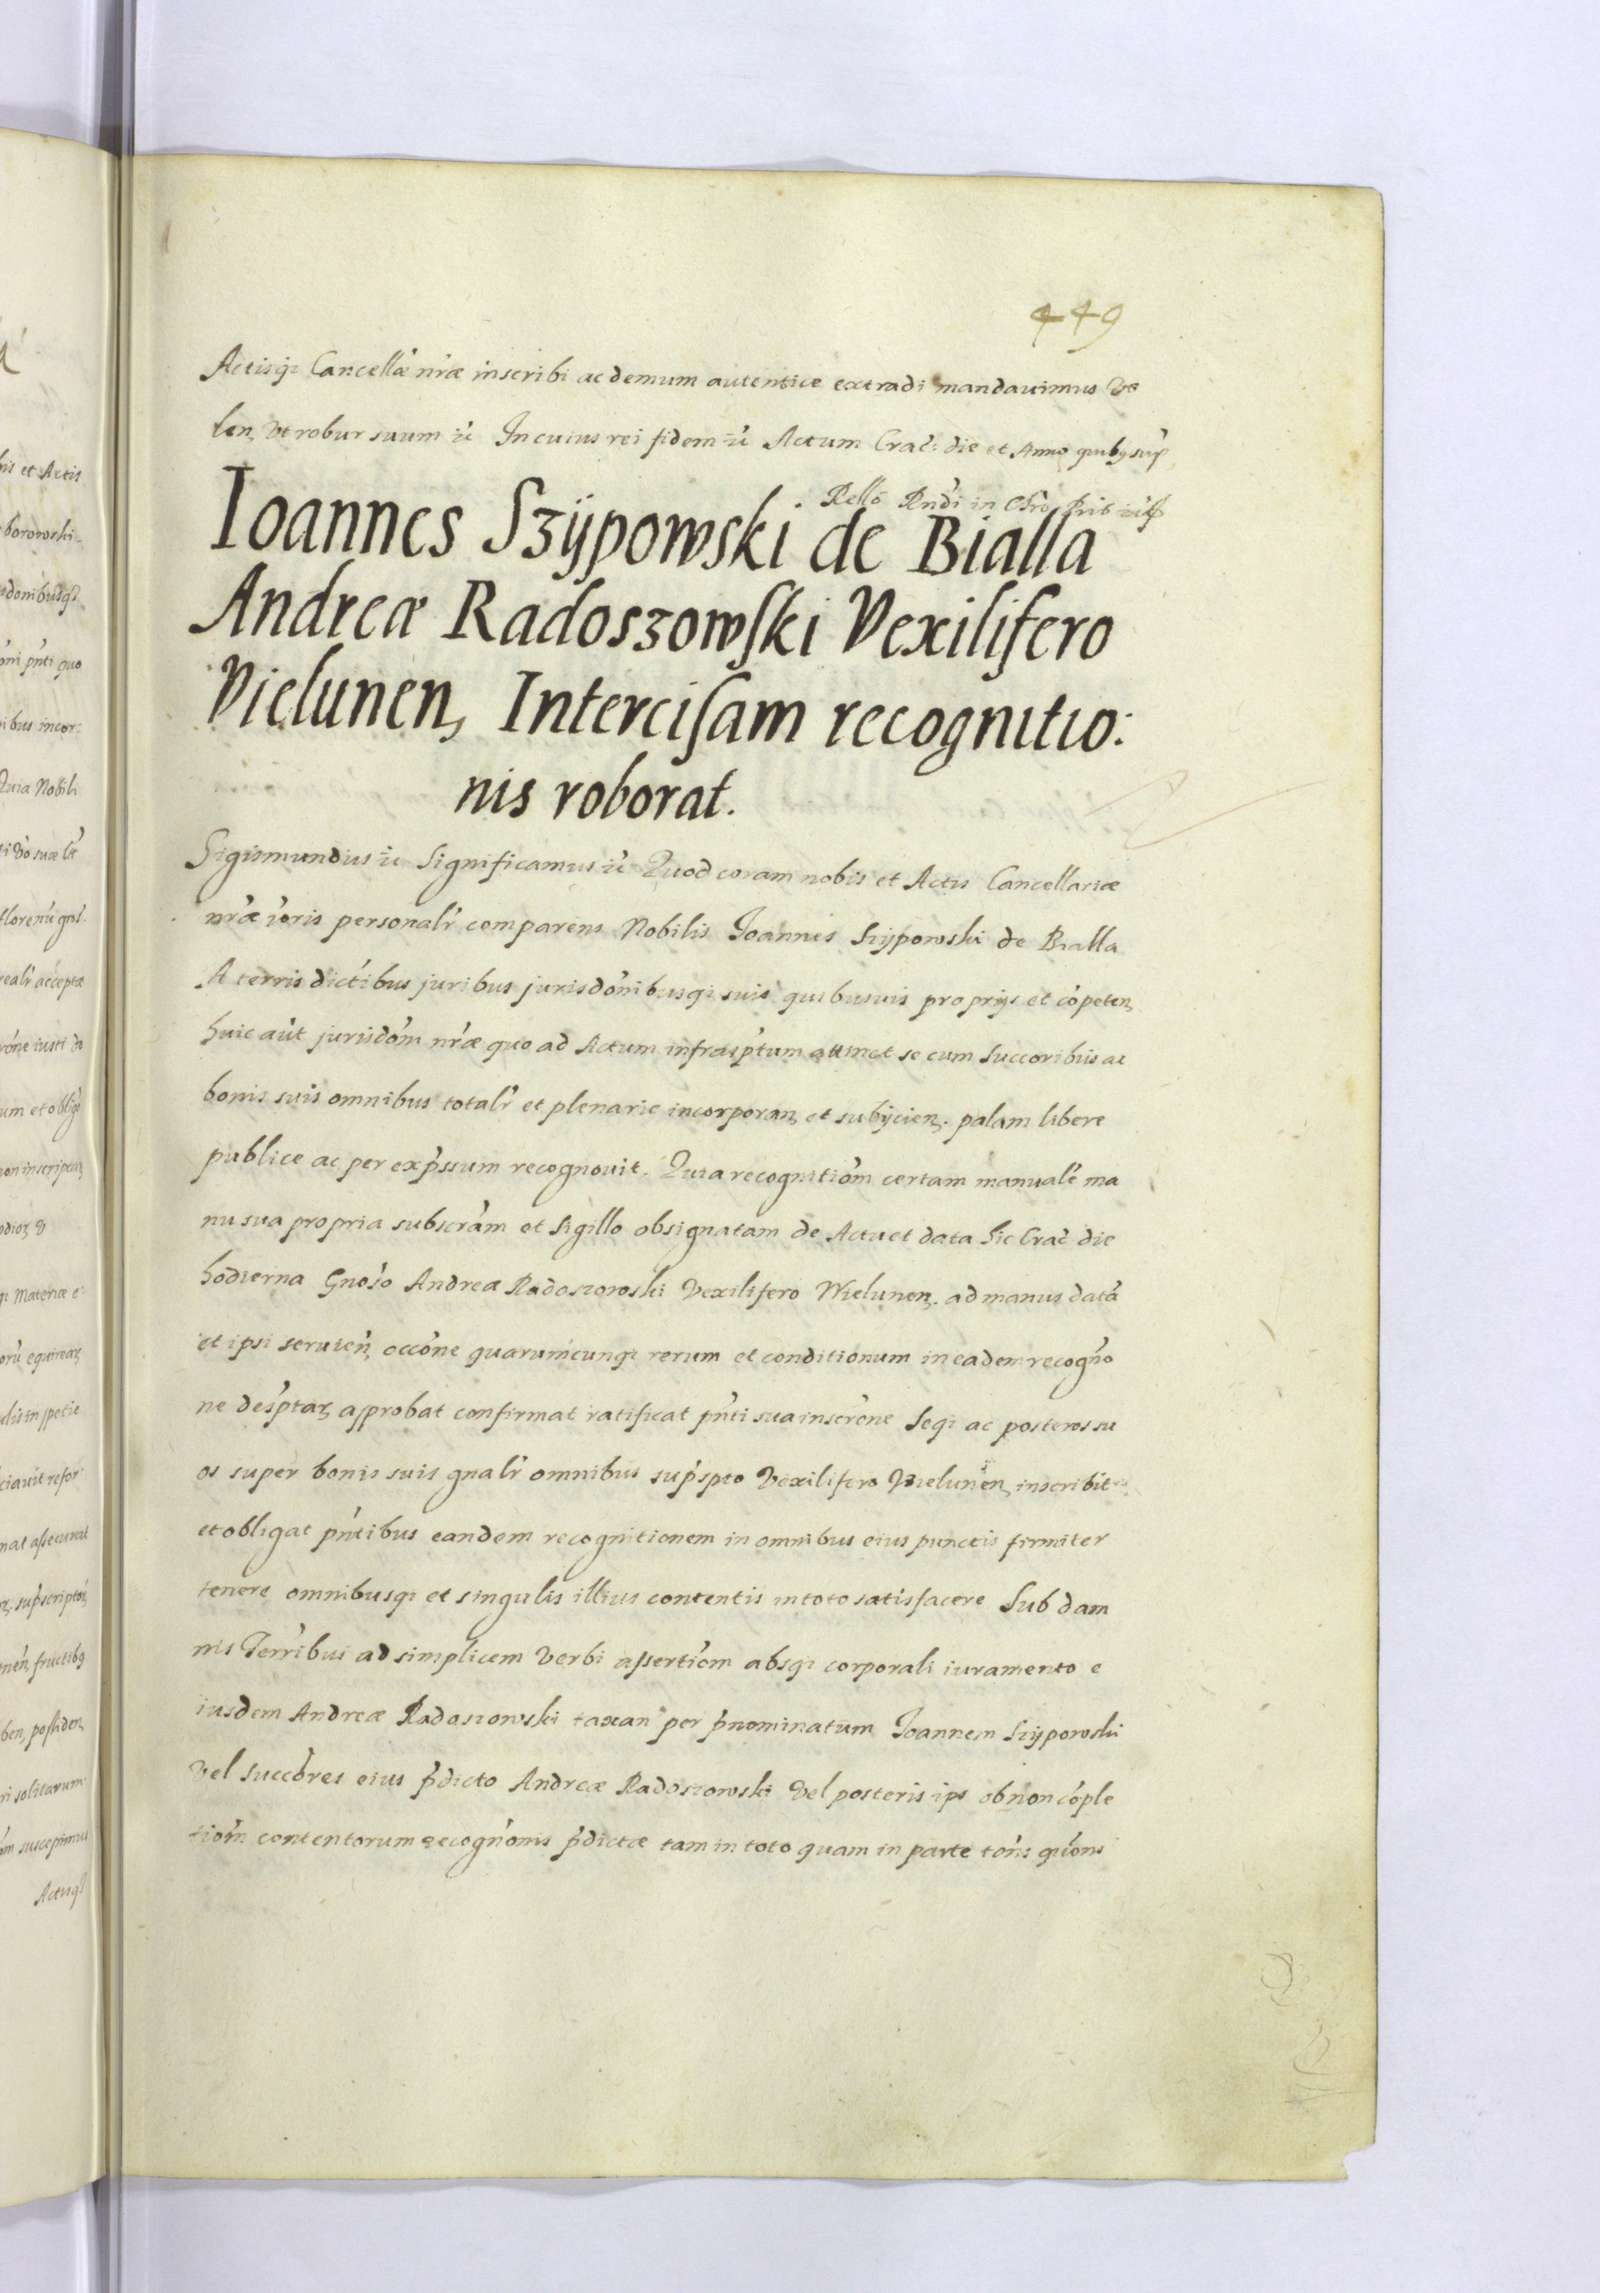 449
Actisqꝫ Cancellae nr̃ae inscribi ac demum autentice extradi mandavimus Vo
len, Vt robur suum etc̃ In cuius rei fidem etc̃ Actum Crac̃: die et Anno quibꝯ sup̃
Rello Rndi in Chro Pris
Ioannes Szÿpowski de Bialla
Andreæ Radoszowſki Vexilifero
Vielunen, Interciſam recognitio:
nis roborat.
Sigismundus etc̃ Significamus etc̃ Quod coram nobis et Actis Cancellariæ
nr̃æ ioris personalr̃ comparens Nobilis Joannes Szÿpowski de Bialla
A terris dictibus juribus jurisdom̃ibusqꝫ suis quibusvis proprijs et cõpeten,
huic aũt jurisdõni nr̃æ quo ad Actum infrasp̃tum attinet se cum Succoribus ac
bonis suis omnibus totalr̃ et plenarie incorporan, et subÿcien, palam libere
publice ac per exp̃ssum recognovit. Quia recognitiõm certam manualẽ ma
nu sua propria subscr̃am et Sigillo obsignatam de Actu et data hic Crac̃ die
hodierna Gnoso Andreæ Radoszowski Vexilifero Wielunen, ad manus datã
et ipsi servien, occõne quarumcunqꝫ rerum et conditionum in eadem recogñ̃o
ne desp̃tar, approbat confirmat ratificat pñti sua inscrõne Seqꝫ ac posteros su
os super bonis suis gnalr̃ omnibus sup̃spto Vexilifero Wielunen, inscribit
et obligat pñtibus eandem recognitionem in omnibus eius punctis firmiter
tenere omnibusqꝫ et singulis illius contentis in toto satisfacere Sub dam
nis Terr̃ibus ad simplicem Verbi assertiõm absqꝫ corporali iuramento e
iusdem Andreæ Radoszowski taxan, per p̃nominatum Joannem Szÿpowski
Vel Succõres eius p̃dicto Andreæ Radoszowski Vel posteris ips ob non cõple
tiõm contentorum recogñonis p̃dictæ tam in toto quam in parte tõns qũons